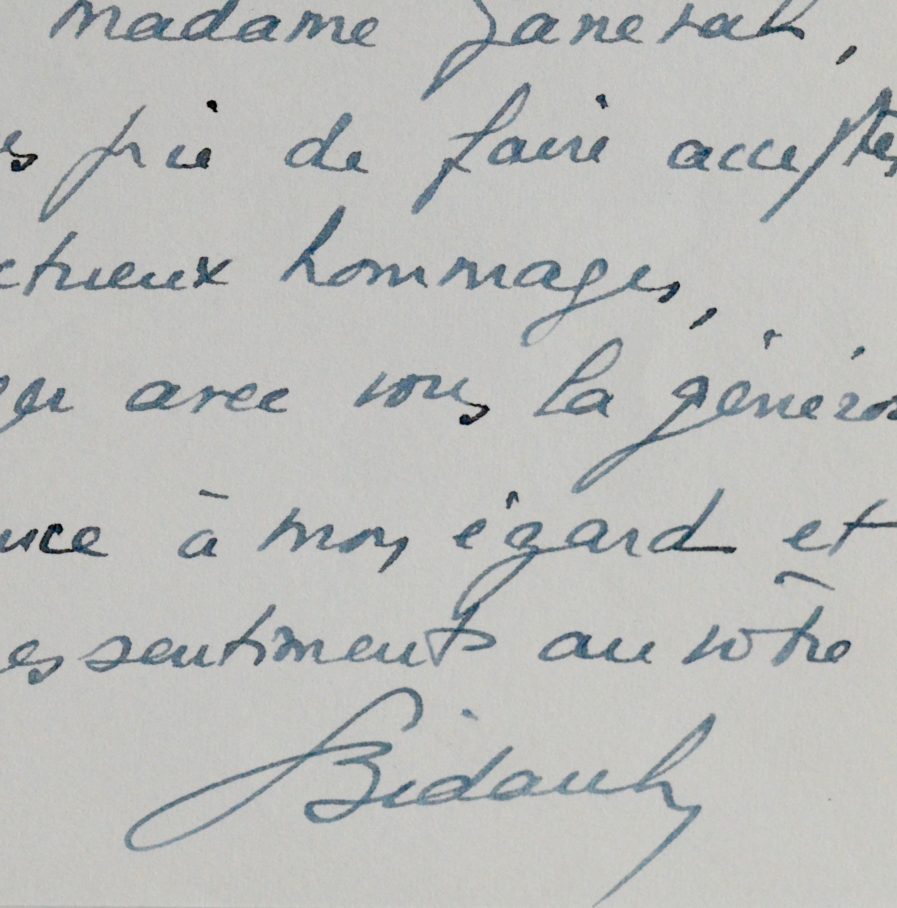 madame Janerah,
prie de faire accepter
ctueux hommages,
avec vous la généros
nce à mon égard et
es sentiments au vôtre
Bidault